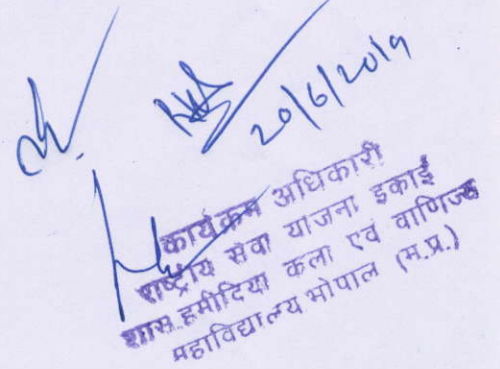 20/6/2019
कार्यक्रम अधिकारी
राष्ट्रीय सेवा योजना इकाई
शास. हमीदिया कला एवं वाणिज्य
महाविद्यालय भोपाल (म.प्र.)